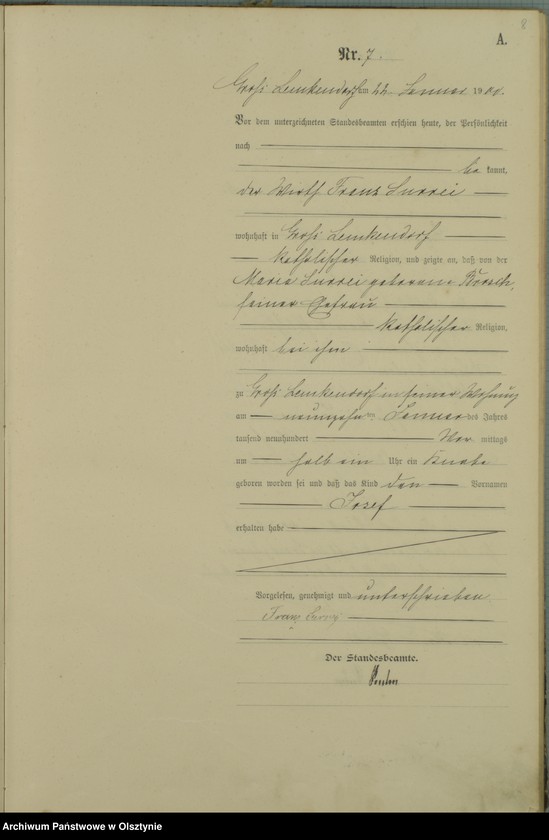 8
A.
Nr. 7.
Groß Lemkendorf am 22. Januar 1900.
Vor dem unterzeichneten Standesbeamten erschien heute, der Persönlichkeit
nach
be kannt,
der Wirth Franz
wohnhaft in Groß Lemkendorf
katholischer Religion, und zeigte an, daß von der
Maria geborene
seiner Ehefrau
katholischer Religion,
wohnhaft bei ihm
zu Groß Lemkendorf in seiner Wohnung
am neunzehnten Januar des Jahres
tausend neunhundert Vor mittags
um halb ein Uhr ein Knabe
geboren worden sei und daß das Kind den Vornamen
Josef
erhalten habe
Vorgelesen, genehmigt und unterschrieben
Franz
Der Standesbeamte.
Archiwum Państwowe w Olsztynie